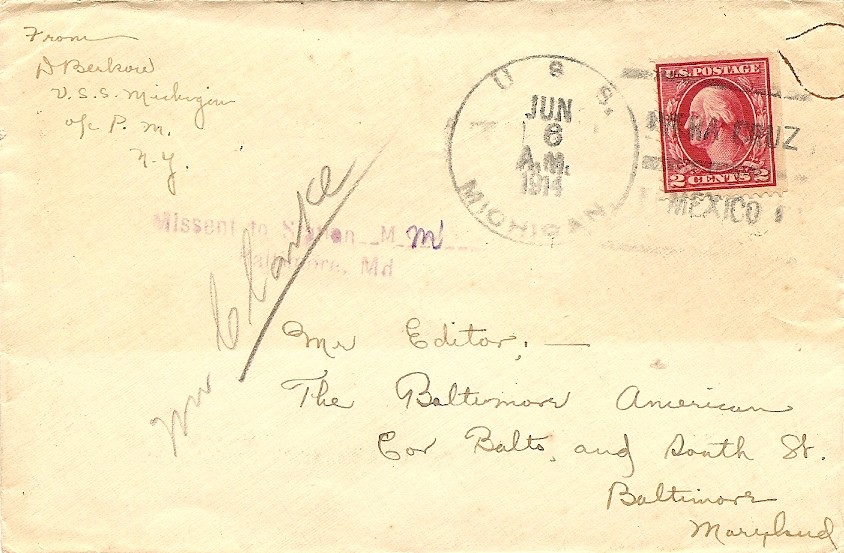 From
D Berkow
U.S.S. Michigan
o/c P. M.
N-Y.
U S S.
JUN
6
A.M.
1914
MICHIGAN.
U.S. POSTAGE
2 CENTS 2
VERA CRUZ
MEXICO
Missent to Station M M
Baltimore, Md
Mr Clarke
Mr Editor; —
The Baltimore American
Cor Balto, and South St.
Baltimore
Maryland